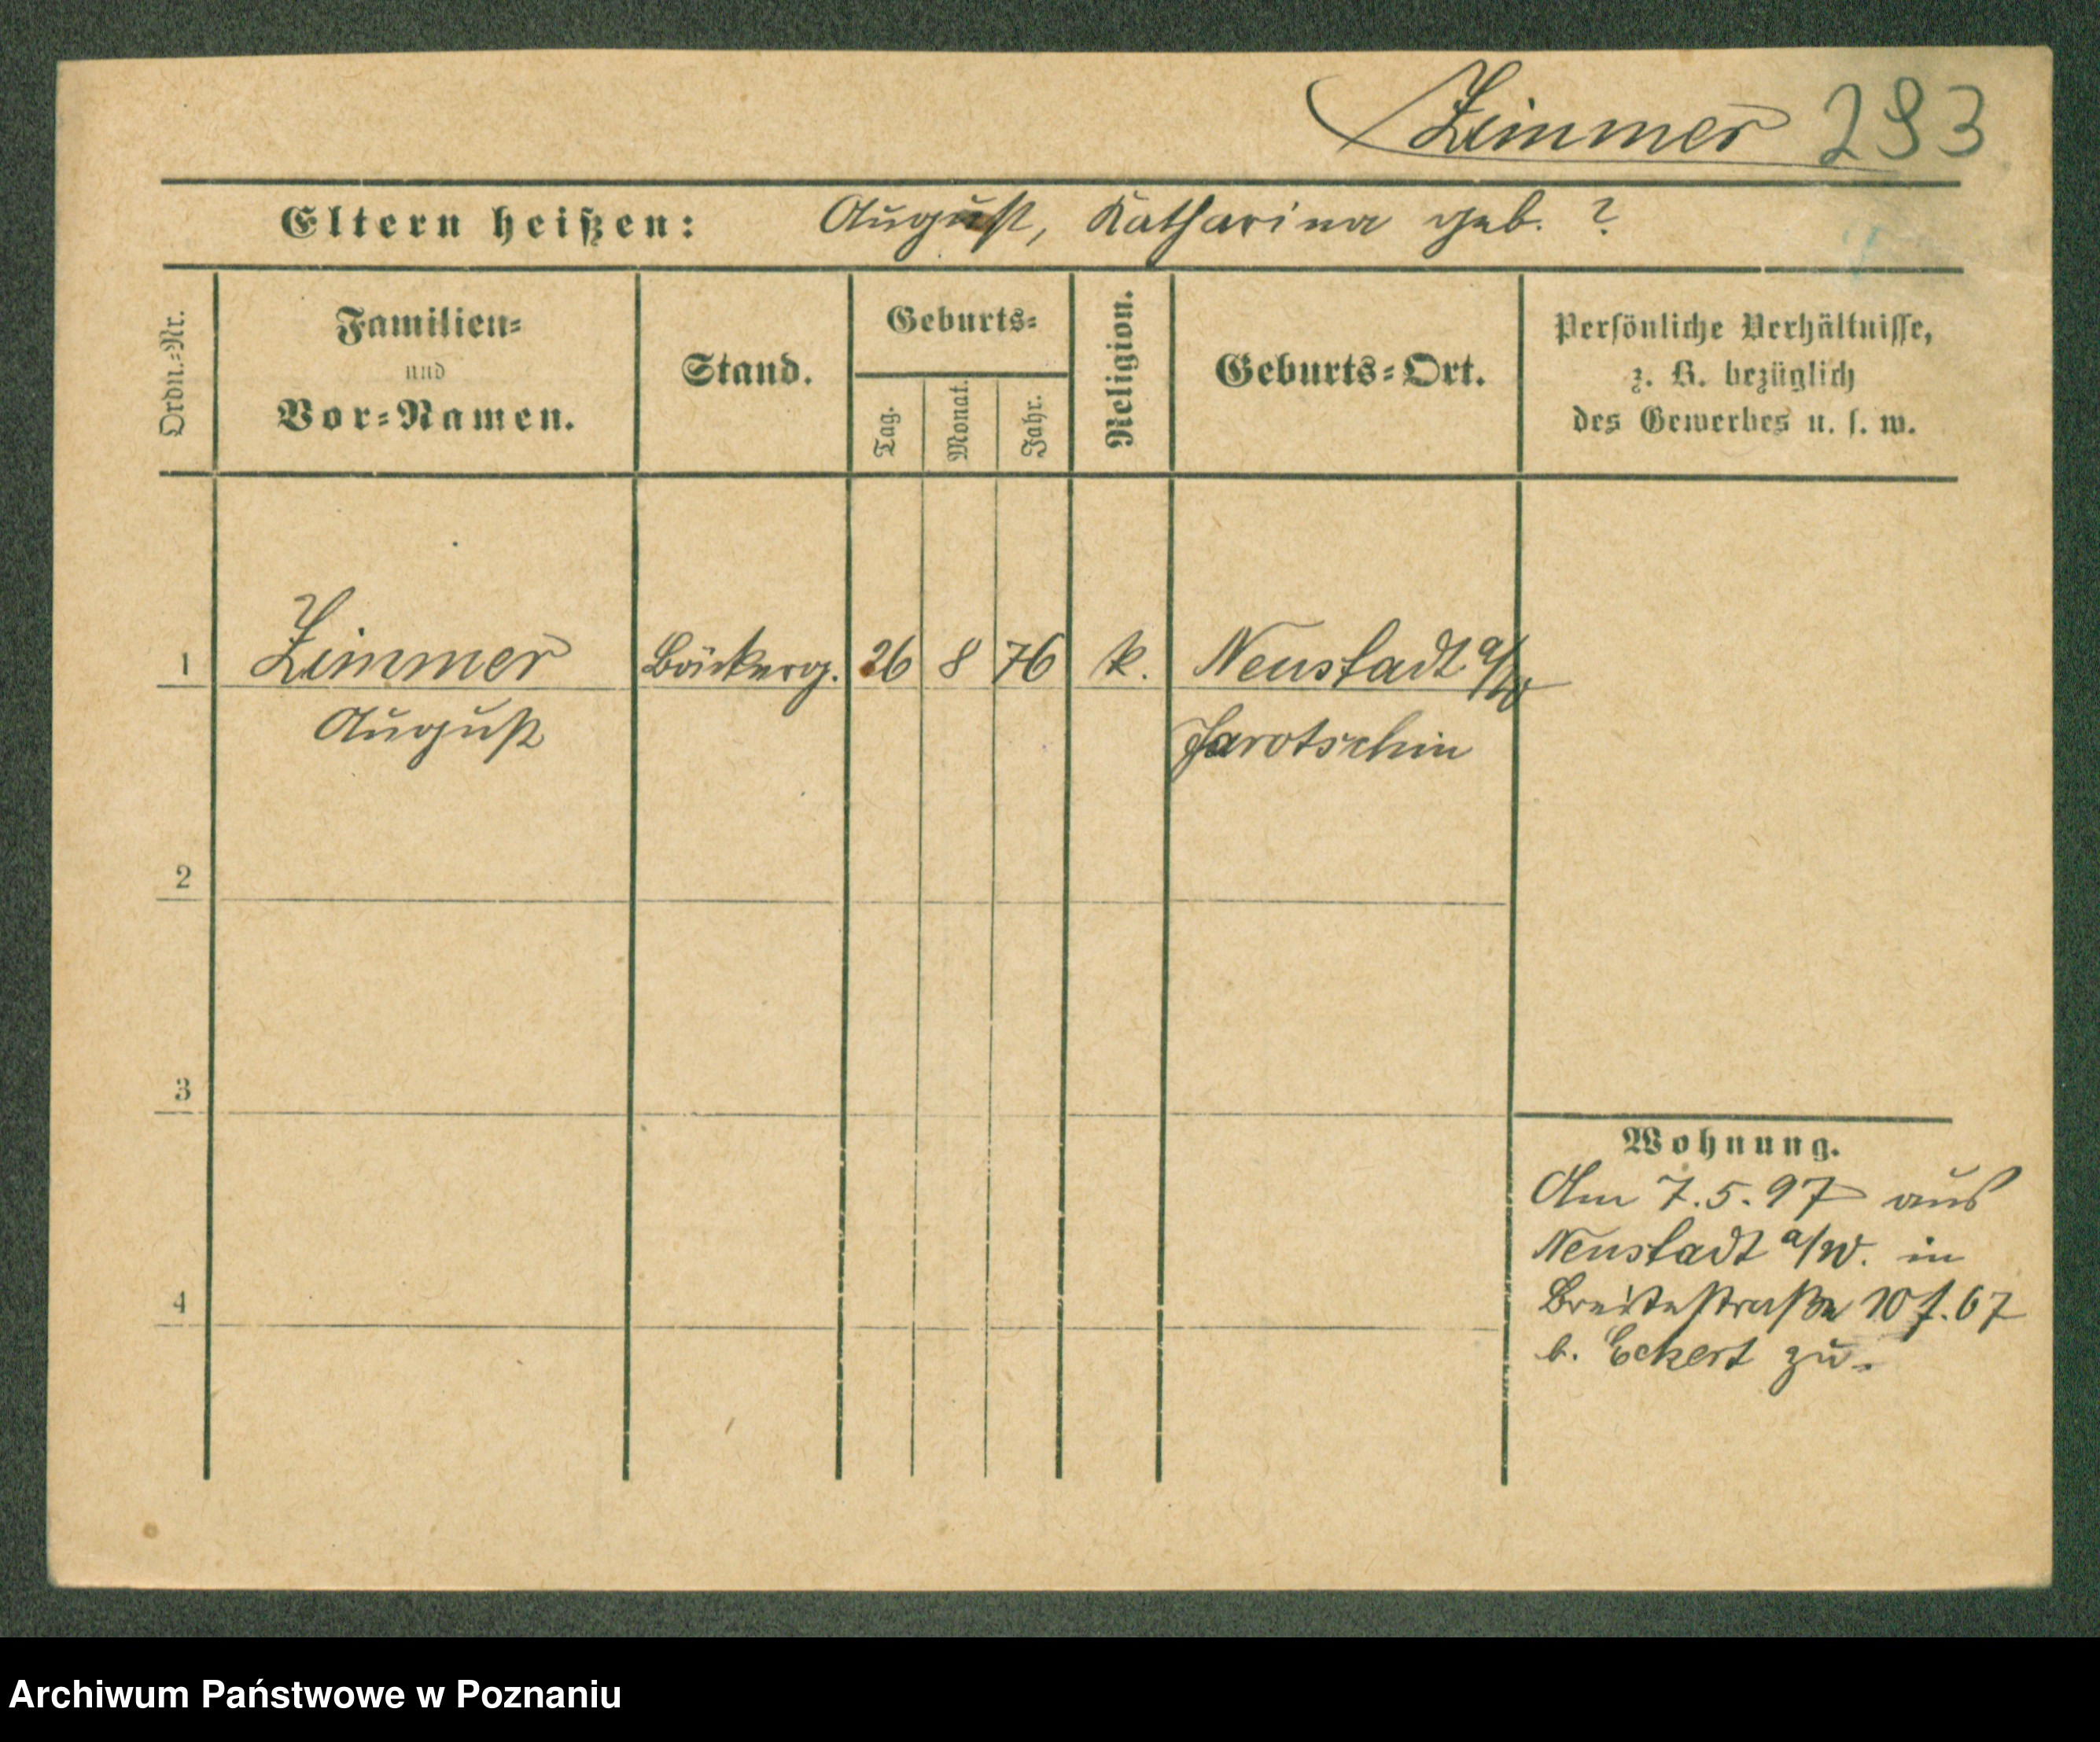 Zimmer 293
Eltern heißen: August, Katharina geb. ?
Ordn.-Nr.
Familien-
und
Vor-Namen.
Stand.
Geburts-
Tag.
Monat.
Jahr.
Religion.
Geburts-Ort.
Persönliche Verhältnisse,
z. B. bezüglich
des Gewerbes u. s. w.
1 Zimmer Bäckerg. 26 8 76 k. Neustadt a/W
August Jarotschin
2
3
4
Wohnung.
Am 7.5.97 aus
Neustadt a/W. in
Breitestraße 10 f. 67
b. Eckert zu.
Archiwum Państwowe w Poznaniu